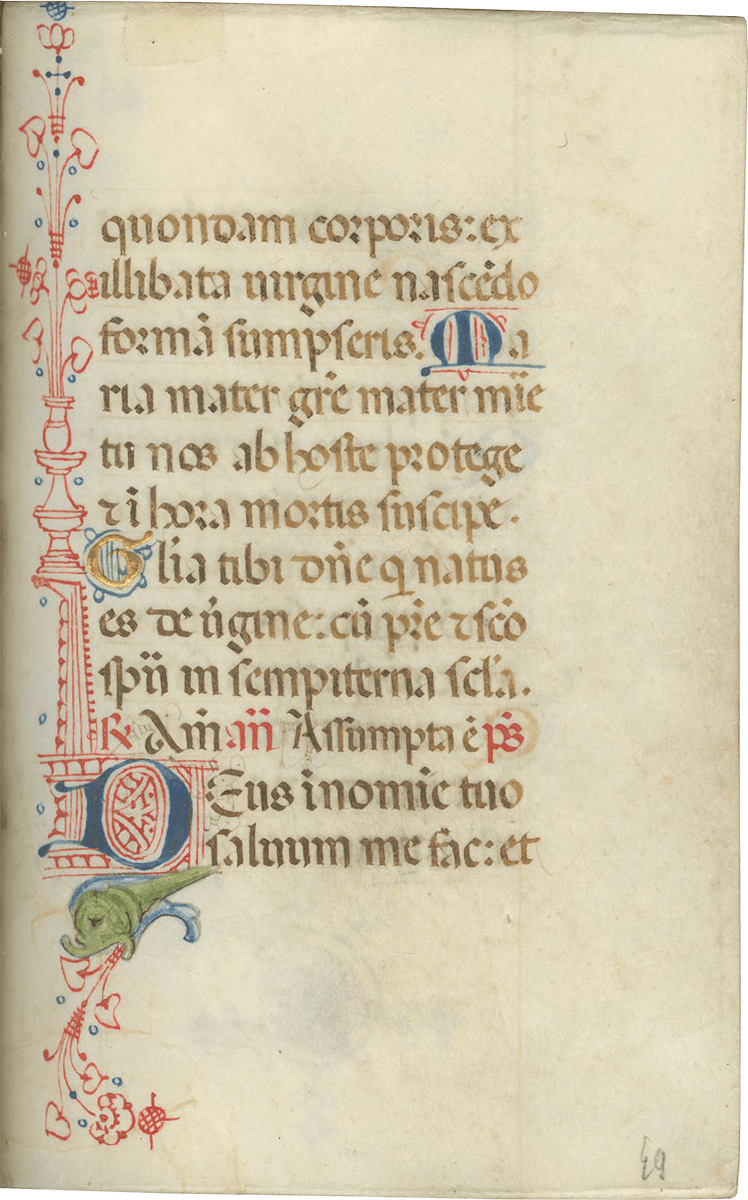 quondam corporis: ex
illibata uirgine nascēdo
formā sumpseris. Ma
ria mater gr̄e mater mīe
tu nos ab hoste protege
⁊ ī hora mortis suscipe.
Gl̄ia tibi dn̄e qi natus
es de ūgine: cū pr̄e ⁊ scō
spū in sempiterna scl̄a.
℟ Am̄ añ Assumpta ē ps̄
Deus i nomīe tuo
saluum me fac: et
49